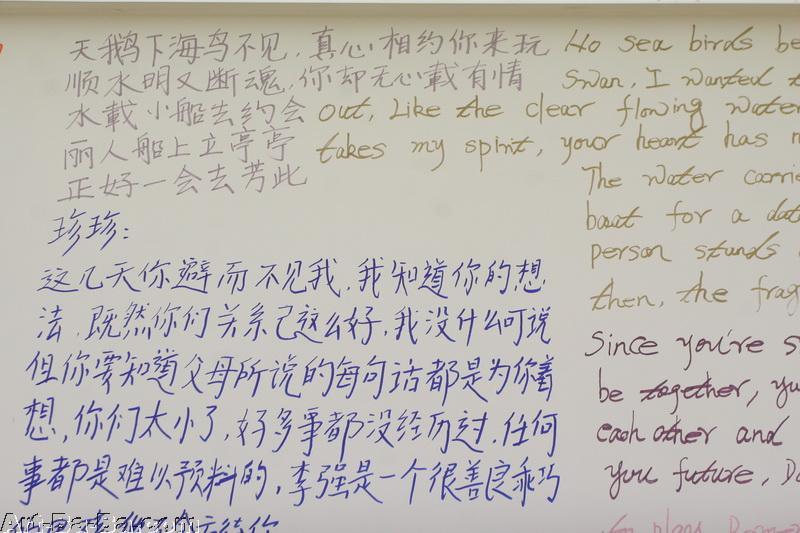 天鹅下海鸟不见，真心相约你来玩
顺水明又断魂，你却无心載有情
水載小船去约会
丽人船上立亭亭
正好一会去芳此
珍珍：
这几天你避而不见我，我知道你的想
法，既然你们关系已这么好，我没什么可说
但你要知道父母所说的每句话都是为你着
想，你们太小了，好多事都没经历过，任何
事都是难以预料的，李强是一个很善良乖巧
Ho sea birds be
Swan, I wanted t
out, Like the clear flowing water
takes my spirit, your heart has n
The water carrie
boat for a dat
person stands
then, the frag
Since you're s
be together, yo
each other and
you future, Do
Art-Ba-Ba.com